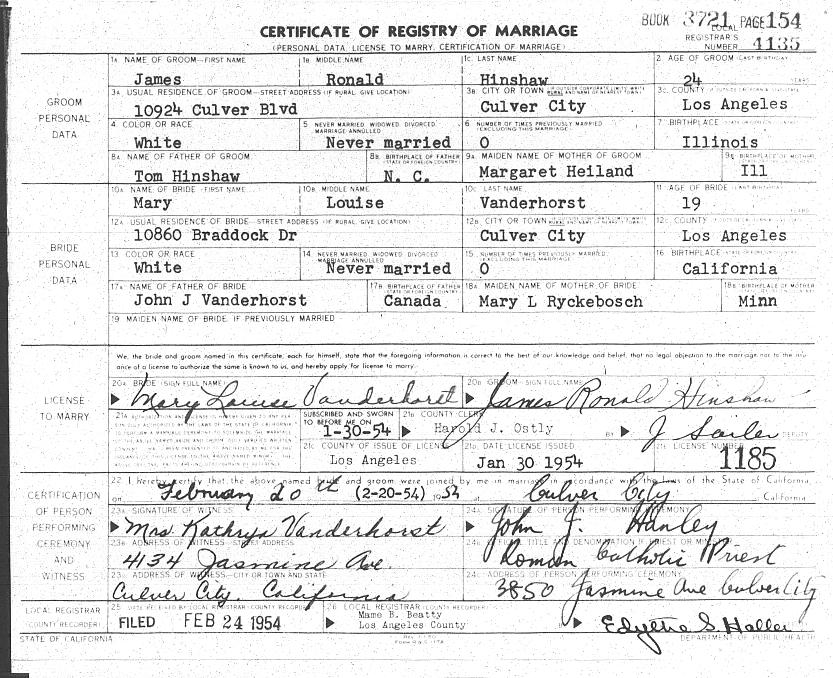 BOOK 3721 PAGE 154
CERTIFICATE OF REGISTRY OF MARRIAGE
(PERSONAL DATA, LICENSE TO MARRY, CERTIFICATION OF MARRIAGE)
LOCAL REGISTRAR'S NUMBER 4135
GROOM PERSONAL DATA
1A NAME OF GROOM—FIRST NAME 1B MIDDLE NAME 1C LAST NAME 2 AGE OF GROOM (LAST BIRTHDAY)
James Ronald Hinshaw 24 YEARS
3A USUAL RESIDENCE OF GROOM—STREET ADDRESS (IF RURAL, GIVE LOCATION) 3B CITY OR TOWN 3C COUNTY
10924 Culver Blvd Culver City Los Angeles
4 COLOR OR RACE 5 NEVER MARRIED, WIDOWED, DIVORCED, MARRIAGE ANNULLED 6 NUMBER OF TIMES PREVIOUSLY MARRIED (EXCLUDING THIS MARRIAGE) 7 BIRTHPLACE
White Never married 0 Illinois
8A NAME OF FATHER OF GROOM 8B BIRTHPLACE OF FATHER (STATE OR FOREIGN COUNTRY) 9A MAIDEN NAME OF MOTHER OF GROOM 9B BIRTHPLACE OF MOTHER
Tom Hinshaw N. C. Margaret Heiland Ill
BRIDE PERSONAL DATA
10A NAME OF BRIDE—FIRST NAME 10B MIDDLE NAME 10C LAST NAME 11 AGE OF BRIDE (LAST BIRTHDAY)
Mary Louise Vanderhorst 19 YEARS
12A USUAL RESIDENCE OF BRIDE—STREET ADDRESS (IF RURAL, GIVE LOCATION) 12B CITY OR TOWN 12C COUNTY
10860 Braddock Dr Culver City Los Angeles
13 COLOR OR RACE 14 NEVER MARRIED, WIDOWED, DIVORCED, MARRIAGE ANNULLED 15 NUMBER OF TIMES PREVIOUSLY MARRIED (EXCLUDING THIS MARRIAGE) 16 BIRTHPLACE
White Never married 0 California
17A NAME OF FATHER OF BRIDE 17B BIRTHPLACE OF FATHER (STATE OR FOREIGN COUNTRY) 18A MAIDEN NAME OF MOTHER OF BRIDE 18B BIRTHPLACE OF MOTHER
John J Vanderhorst Canada Mary L Ryckebosch Minn
19 MAIDEN NAME OF BRIDE, IF PREVIOUSLY MARRIED
LICENSE TO MARRY
We, the bride and groom named in this certificate, each for himself, state that the foregoing information is correct to the best of our knowledge and belief, that no legal objection to the marriage nor to the issuance of a license to authorize the same is known to us, and hereby apply for license to marry.
20A BRIDE (SIGN FULL NAME) 20B GROOM (SIGN FULL NAME)
Mary Louise Vanderhorst James Ronald Hinshaw
SUBSCRIBED AND SWORN TO BEFORE ME ON 21B COUNTY CLERK
1-30-54 Harold J. Ostly BY DEPUTY
21C COUNTY OF ISSUE OF LICENSE 21D DATE LICENSE ISSUED 21E LICENSE NUMBER
Los Angeles Jan 30 1954 1185
CERTIFICATION OF PERSON PERFORMING CEREMONY AND WITNESS
22 I hereby certify that the above named bride and groom were joined by me in marriage in accordance with the laws of the State of California
on February 20th (2-20-54) 1954 at Culver City California
23A SIGNATURE OF WITNESS 24A SIGNATURE OF PERSON PERFORMING CEREMONY
Mrs Kathryn Vanderhorst John J. Hanley
23B ADDRESS OF WITNESS—STREET ADDRESS 24B OFFICIAL TITLE AND DENOMINATION IF PRIEST OR MINISTER
4134 Jasmine Ave. Roman Catholic Priest
23C ADDRESS OF WITNESS—CITY OR TOWN AND STATE 24C ADDRESS OF PERSON PERFORMING CEREMONY
Culver City, California 3850 Jasmine Ave Culver City
LOCAL REGISTRAR (COUNTY RECORDER)
25 DATE RECEIVED BY LOCAL REGISTRAR (COUNTY RECORDER) 26 LOCAL REGISTRAR (COUNTY RECORDER)
FILED FEB 24 1954 Mame B. Beatty
Los Angeles County
Edythe S. Haller
STATE OF CALIFORNIA DEPARTMENT OF PUBLIC HEALTH